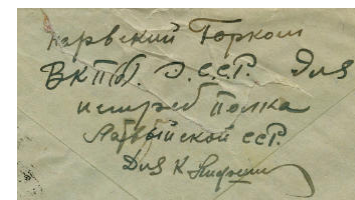 Нарвский Горком
ВКПб. Э.С.С.Р. Для
истреб полка
Латвыйской ССР.
Для К